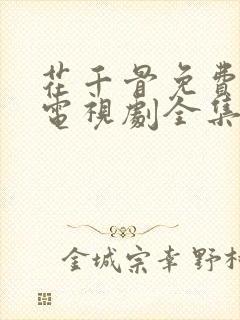 花千骨免費
電視劇全集
金城宗幸野村